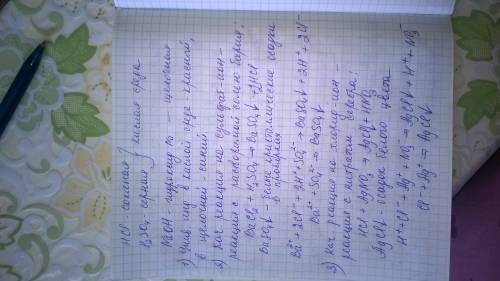 HCl - соляная } кислая среда
H₂SO₄ - серная
NaOH - гидроксид Na - щелочная
1) Унив. инд. в кислой среде красный,
в щелочной синий
2) Кач. реакция на сульфат-ион -
реакция с растворимой солью бария:
BaCl₂ + H₂SO₄ → BaSO₄↓ + 2HCl
BaSO₄↓ белые кристаллические осадки
в пробирке
Ba²⁺ + 2Cl⁻ + 2H⁺ + SO₄²⁻ → BaSO₄↓ + 2H⁺ + 2Cl⁻
Ba²⁺ + SO₄²⁻ → BaSO₄↓
3) Кач. реакция на хлорид-ион -
реакция с нитратом серебра:
HCl + AgNO₃ → AgCl↓ + HNO₃
AgCl↓ - осадок белого цвета
H⁺ + Cl⁻ + Ag⁺ + NO₃⁻ → AgCl↓ + H⁺ + NO₃⁻
Cl⁻ + Ag⁺ → AgCl↓